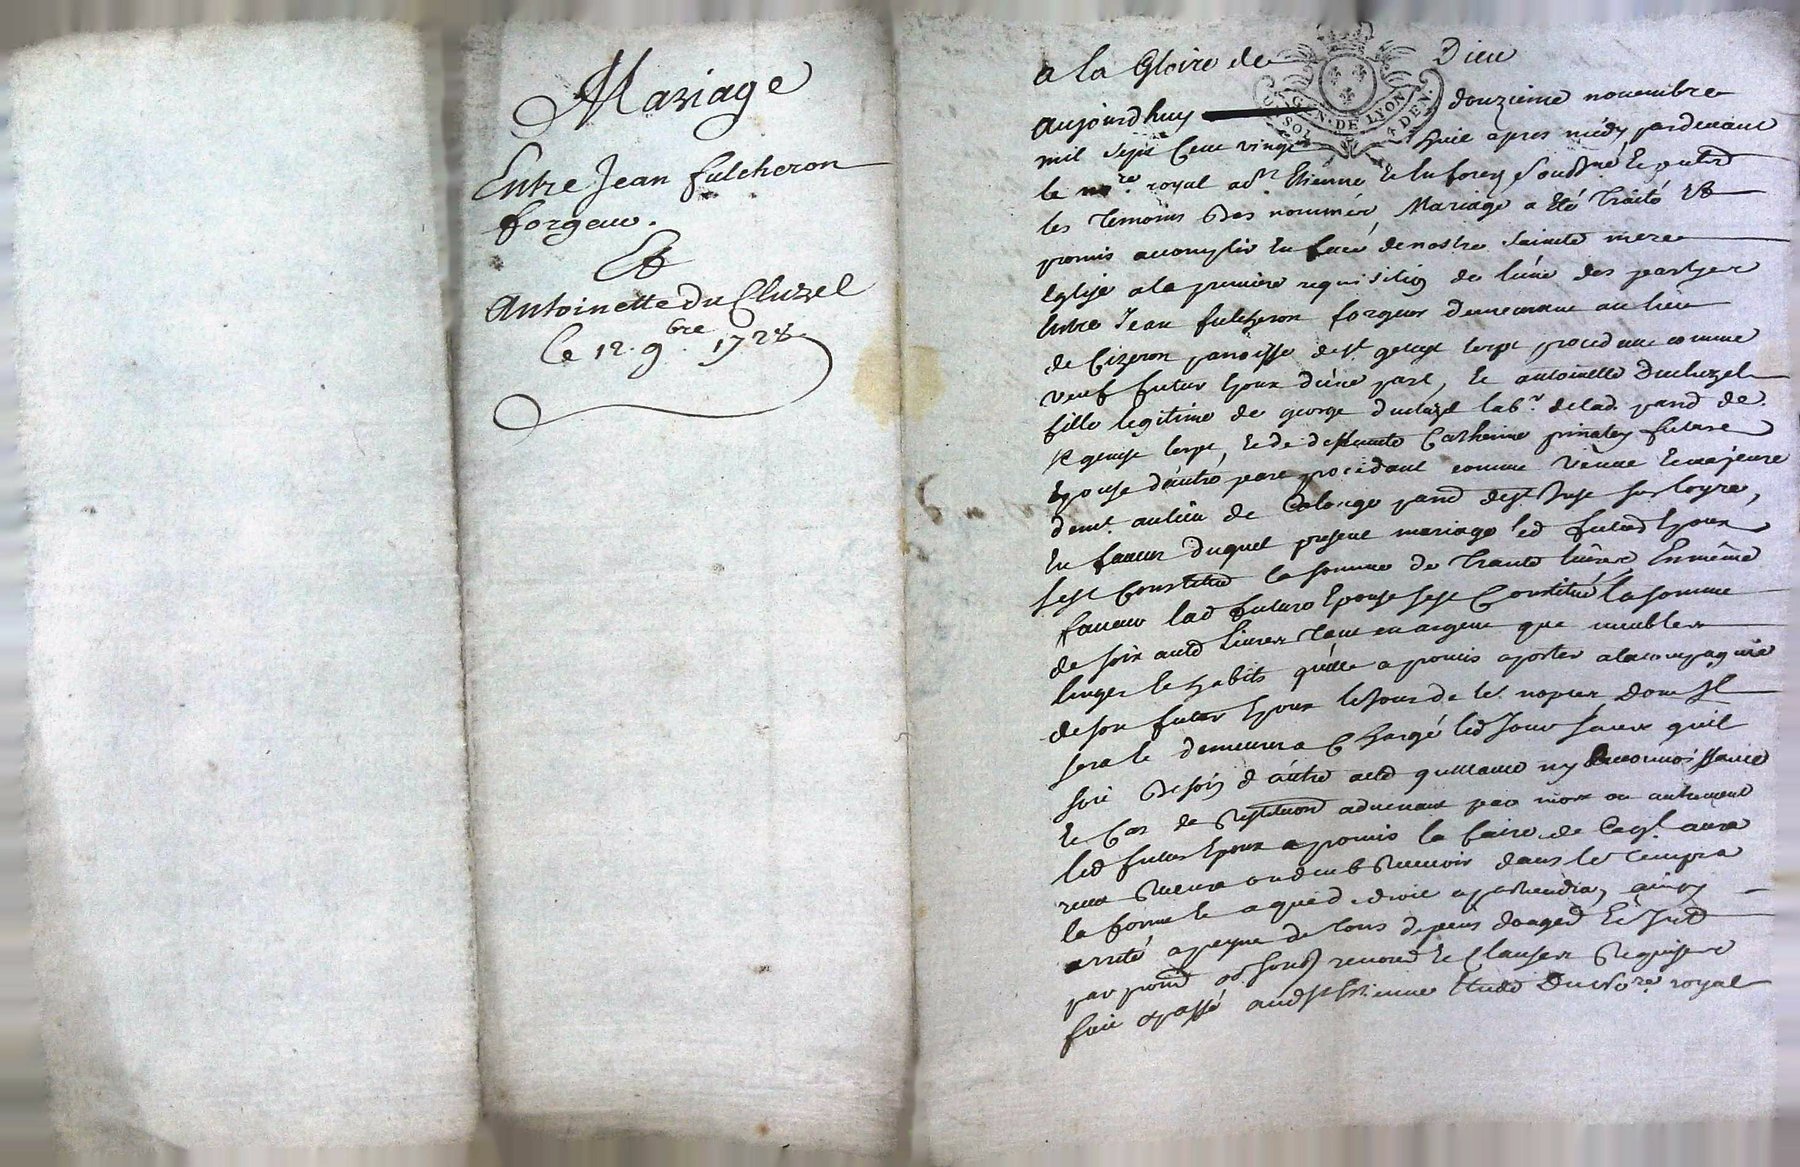 Mariage
Entre Jean fulcheron
forgeur.
Et
Antoinette du Cluzel
le 12. 9.bre 1728
a la Gloire de Dieu
GEN. DE LYON
SOL 4 DEN.
Aujourdhuy douzieme novembre
mil sept Cent vingt huit apres midy, pardevant
le no.re royal a St Etienne en forez soussné, Et present
les temoins bas nommés, Mariage a eté traité Et
promis accomplir En face de nostre Sainte mere
Eglise a la premiere requisition de lune des partyes
Entre Jean fulcheron forgeur demeurant au lieu
de Cizeron parroisse de St genest lerpt procedant comme
veuf futur Epoux dune part, Et antoinette Ducluzel
fille legitime de george ducluzel lab.r de lad. parr de
St genest lerpt, Et de deffunte Catherine pinatey future
Epouse dautre part procedant comme Et majeure
demt au lieu de parr de St Just sur loyre,
En faveur duquel present mariage led futur Epoux
sest Constitué la somme de trante livres Et en même
faveur lad future Epouse sest Constitué la somme
de soixante livres tant en argent que meubles
linges Et habits quelle a promis aporter a la compagnie
de son futur Epoux le jour de Ses nopces dont Il
sera Et demeurera Chargé led Jour sans quil
soit besoin dautre acte quittance ny reconnoissance
Et Cas de restitution advenant par mort ou autrement
led futur Epoux a promis la faire de Ce qil aura
receu ou deub recevoir dans le temps Et
la forme Et a qui de droit apartiendra, ainsy
arreté a peyne de tous depens domages Et Intts
par promesses renonc. Et Clauses requises
fait Et passé audt St Etienne Etude du No.re royal